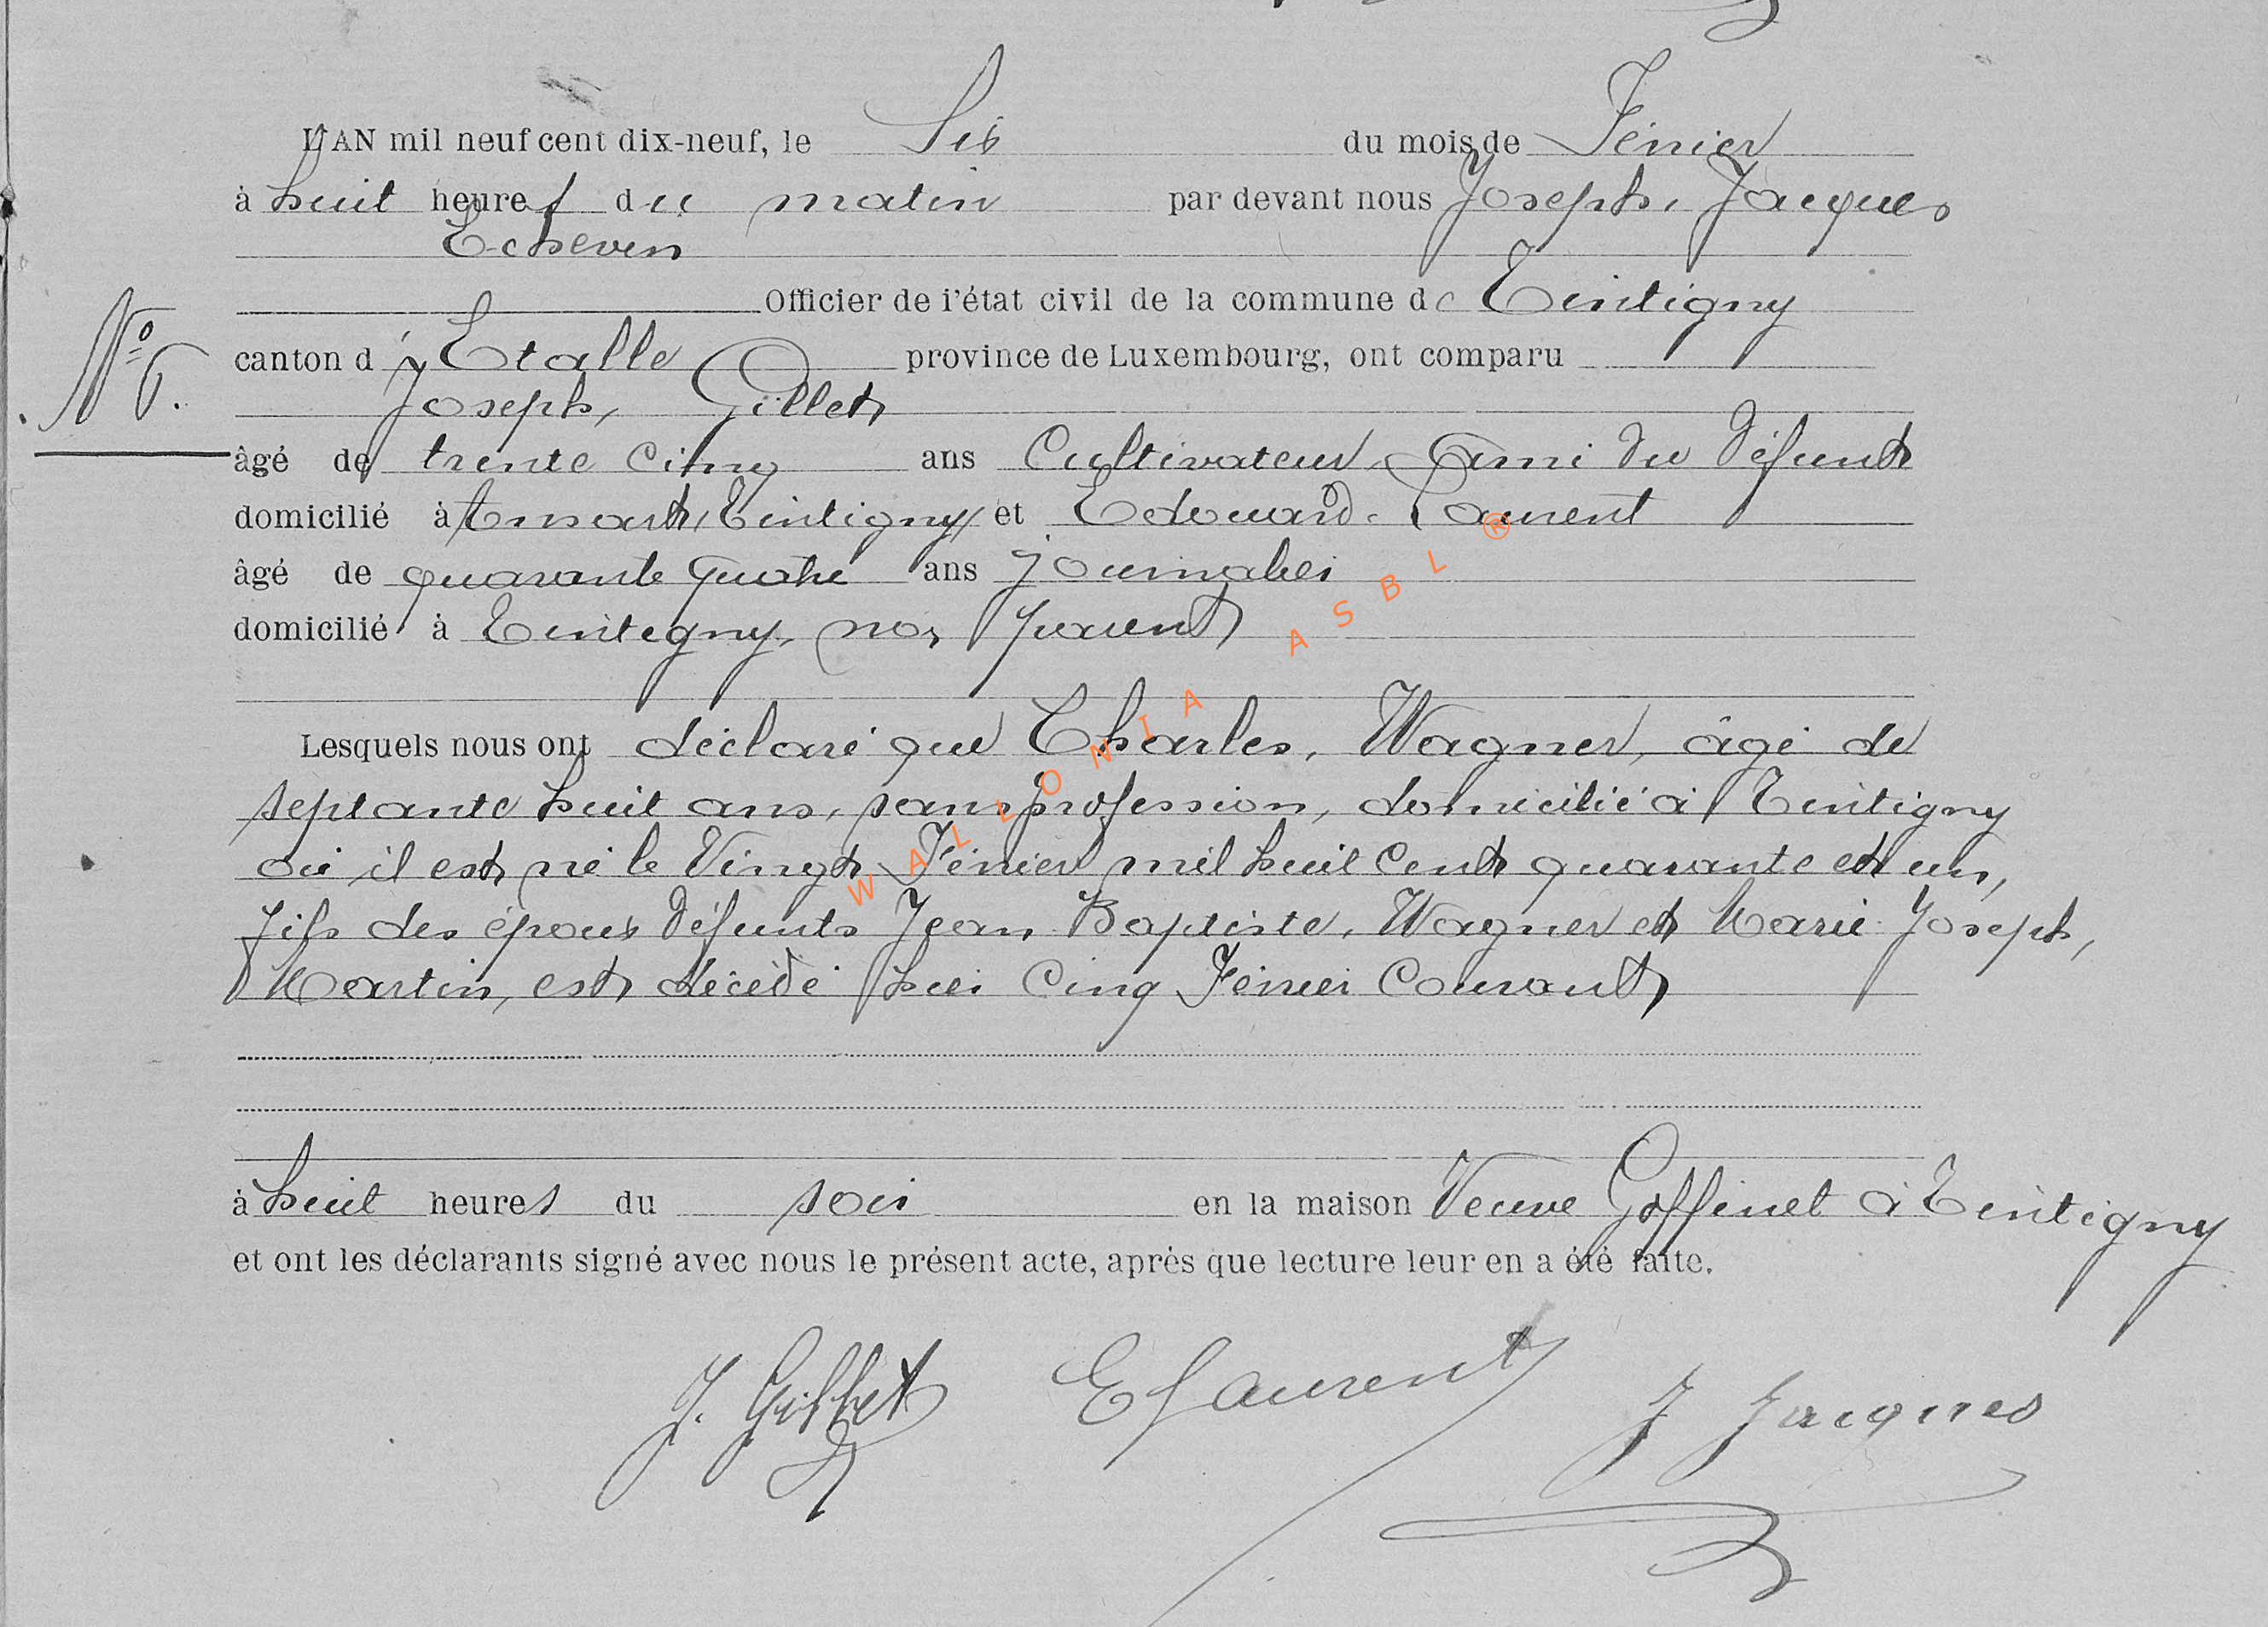 L'AN mil neuf cent dix-neuf, le Six du mois de Février
à huit heures du matin par devant nous Joseph, Jacques
Echevin
Officier de l'état civil de la commune de Tintigny
N° 6.
canton d'Etalle province de Luxembourg, ont comparu
Joseph, Gillet
âgé de trente cinq ans Cultivateur, ami du défunt
domicilié à Ansart, Tintigny et Edouard Laurent
âgé de quarante quatre ans journalier
domicilié à Tintigny, non parent
Lesquels nous ont déclaré que Charles, Wagner, âgé de
septante huit ans, sans profession, domicilié à Tintigny
où il est né le Vingt Février mil huit Cent quarante et un,
fils des époux défunts Jean Baptiste, Wagner et Marie Joseph,
Martin, est décédé hier Cinq Février Courant
à huit heures du soir en la maison Veuve Goffinet à Tintigny
et ont les déclarants signé avec nous le présent acte, après que lecture leur en a été faite.
J. Gillet E Laurent J Jacques
WALLONIA ASBL ®